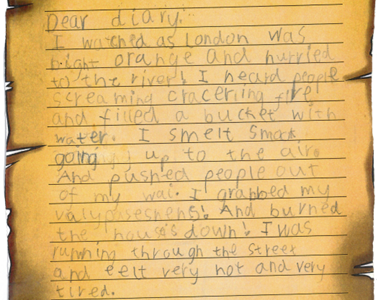 Dear diary:
I watched as London was
bright orange and hurried
to the river! I heard people
screaming cracering fire
and filled a bucket with
water. I smelt smork
going up to the air.
And pushed people out
of my wai. I grabbed my
valyposeshens! And burned
the houses down! I was
running through the street
and felt very hot and very
tired.